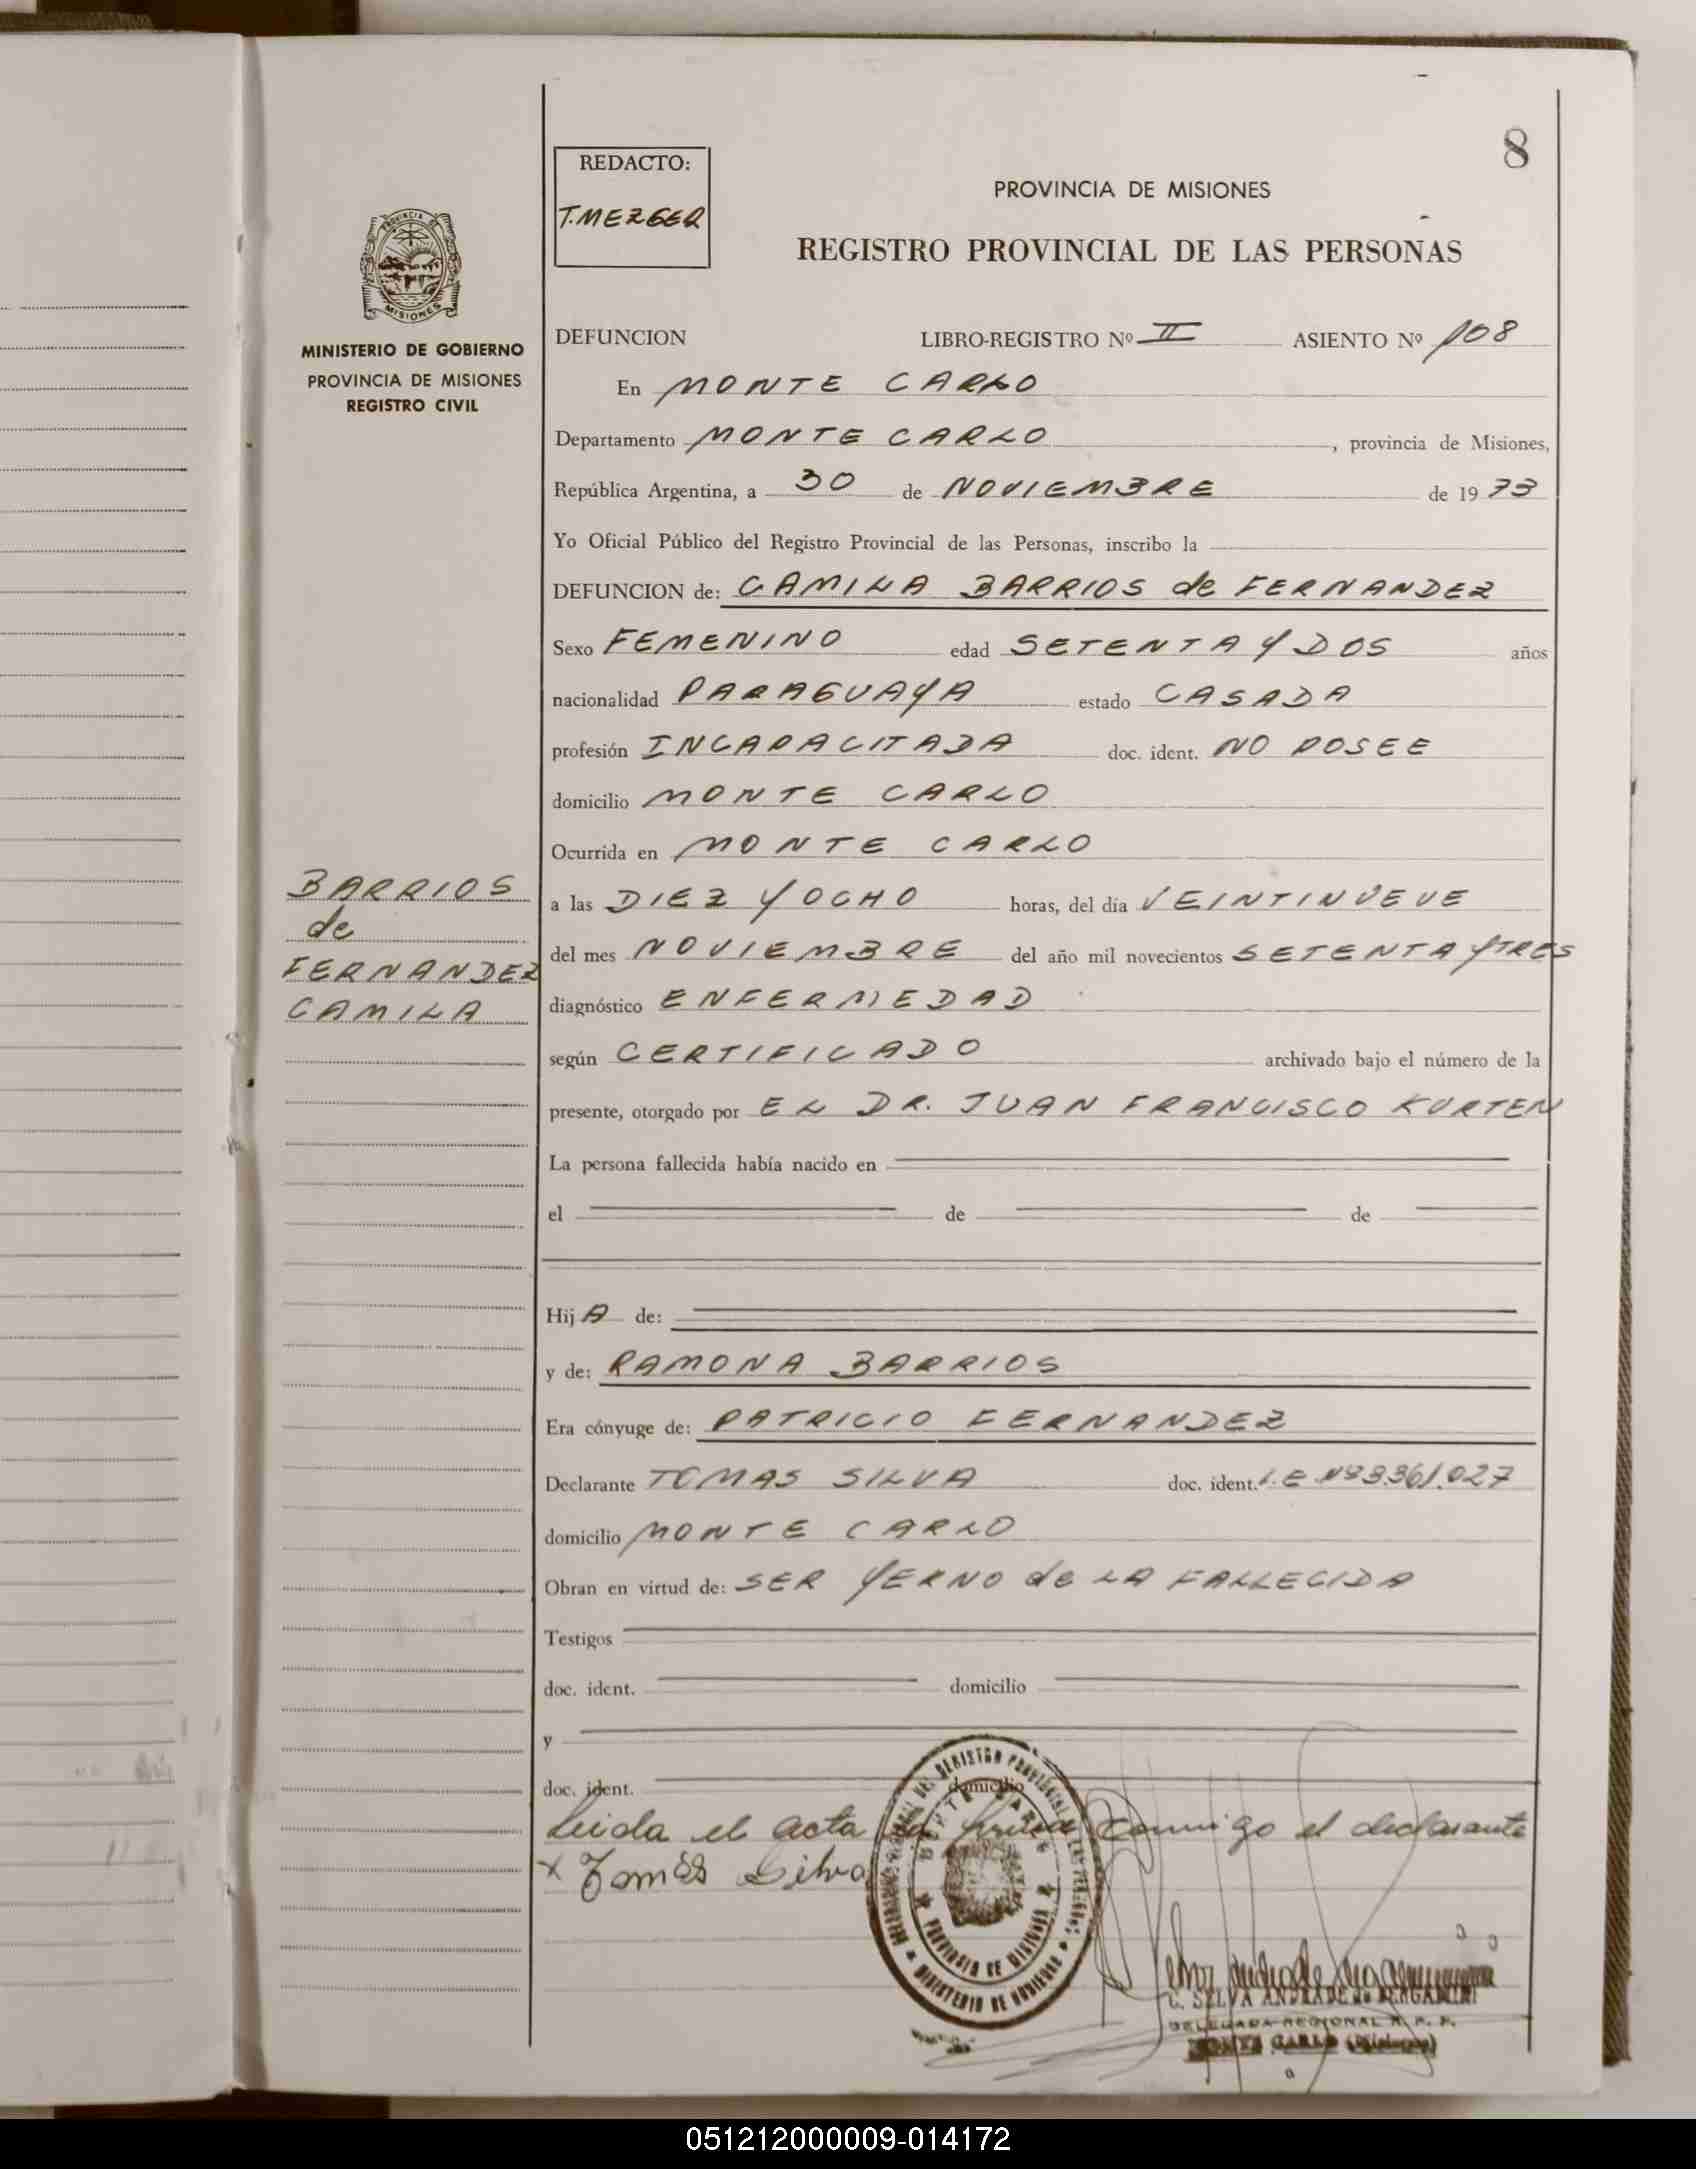 8
REDACTO:
T. MEZGER
PROVINCIA DE MISIONES
REGISTRO PROVINCIAL DE LAS PERSONAS
MINISTERIO DE GOBIERNO
PROVINCIA DE MISIONES
REGISTRO CIVIL
DEFUNCION LIBRO-REGISTRO Nº II ASIENTO Nº 108
En MONTE CARLO
Departamento MONTE CARLO, provincia de Misiones,
República Argentina, a 30 de NOVIEMBRE de 1973
Yo Oficial Público del Registro Provincial de las Personas, inscribo la
DEFUNCION de: CAMILA BARRIOS de FERNANDEZ
Sexo FEMENINO edad SETENTA Y DOS años
nacionalidad PARAGUAYA estado CASADA
profesión INCAPACITADA doc. ident. NO POSEE
domicilio MONTE CARLO
Ocurrida en MONTE CARLO
BARRIOS
de
FERNANDEZ
CAMILA
a las DIEZ Y OCHO horas, del día VEINTINUEVE
del mes NOVIEMBRE del año mil novecientos SETENTA Y TRES
diagnóstico ENFERMEDAD
según CERTIFICADO archivado bajo el número de la
presente, otorgado por EL DR. JUAN FRANCISCO KURTEN
La persona fallecida había nacido en
el de de
Hij A de:
y de: RAMONA BARRIOS
Era cónyuge de: PATRICIO FERNANDEZ
Declarante TOMAS SILVA doc. ident. L.E Nº 3.361.027
domicilio MONTE CARLO
Obran en virtud de: SER YERNO de LA FALLECIDA
Testigos
doc. ident. domicilio
y
doc. ident. domicilio
Leida el acta la firma conmigo el declarante
x Tomás Silva
MONTE CARLO
PROVINCIA DE MISIONES
MINISTERIO DE GOBIERNO
C. SELVA ANDRADE de BERGAMINI
DELEGADA REGIONAL R. P. P.
MONTE CARLO (Misiones)
051212000009-014172